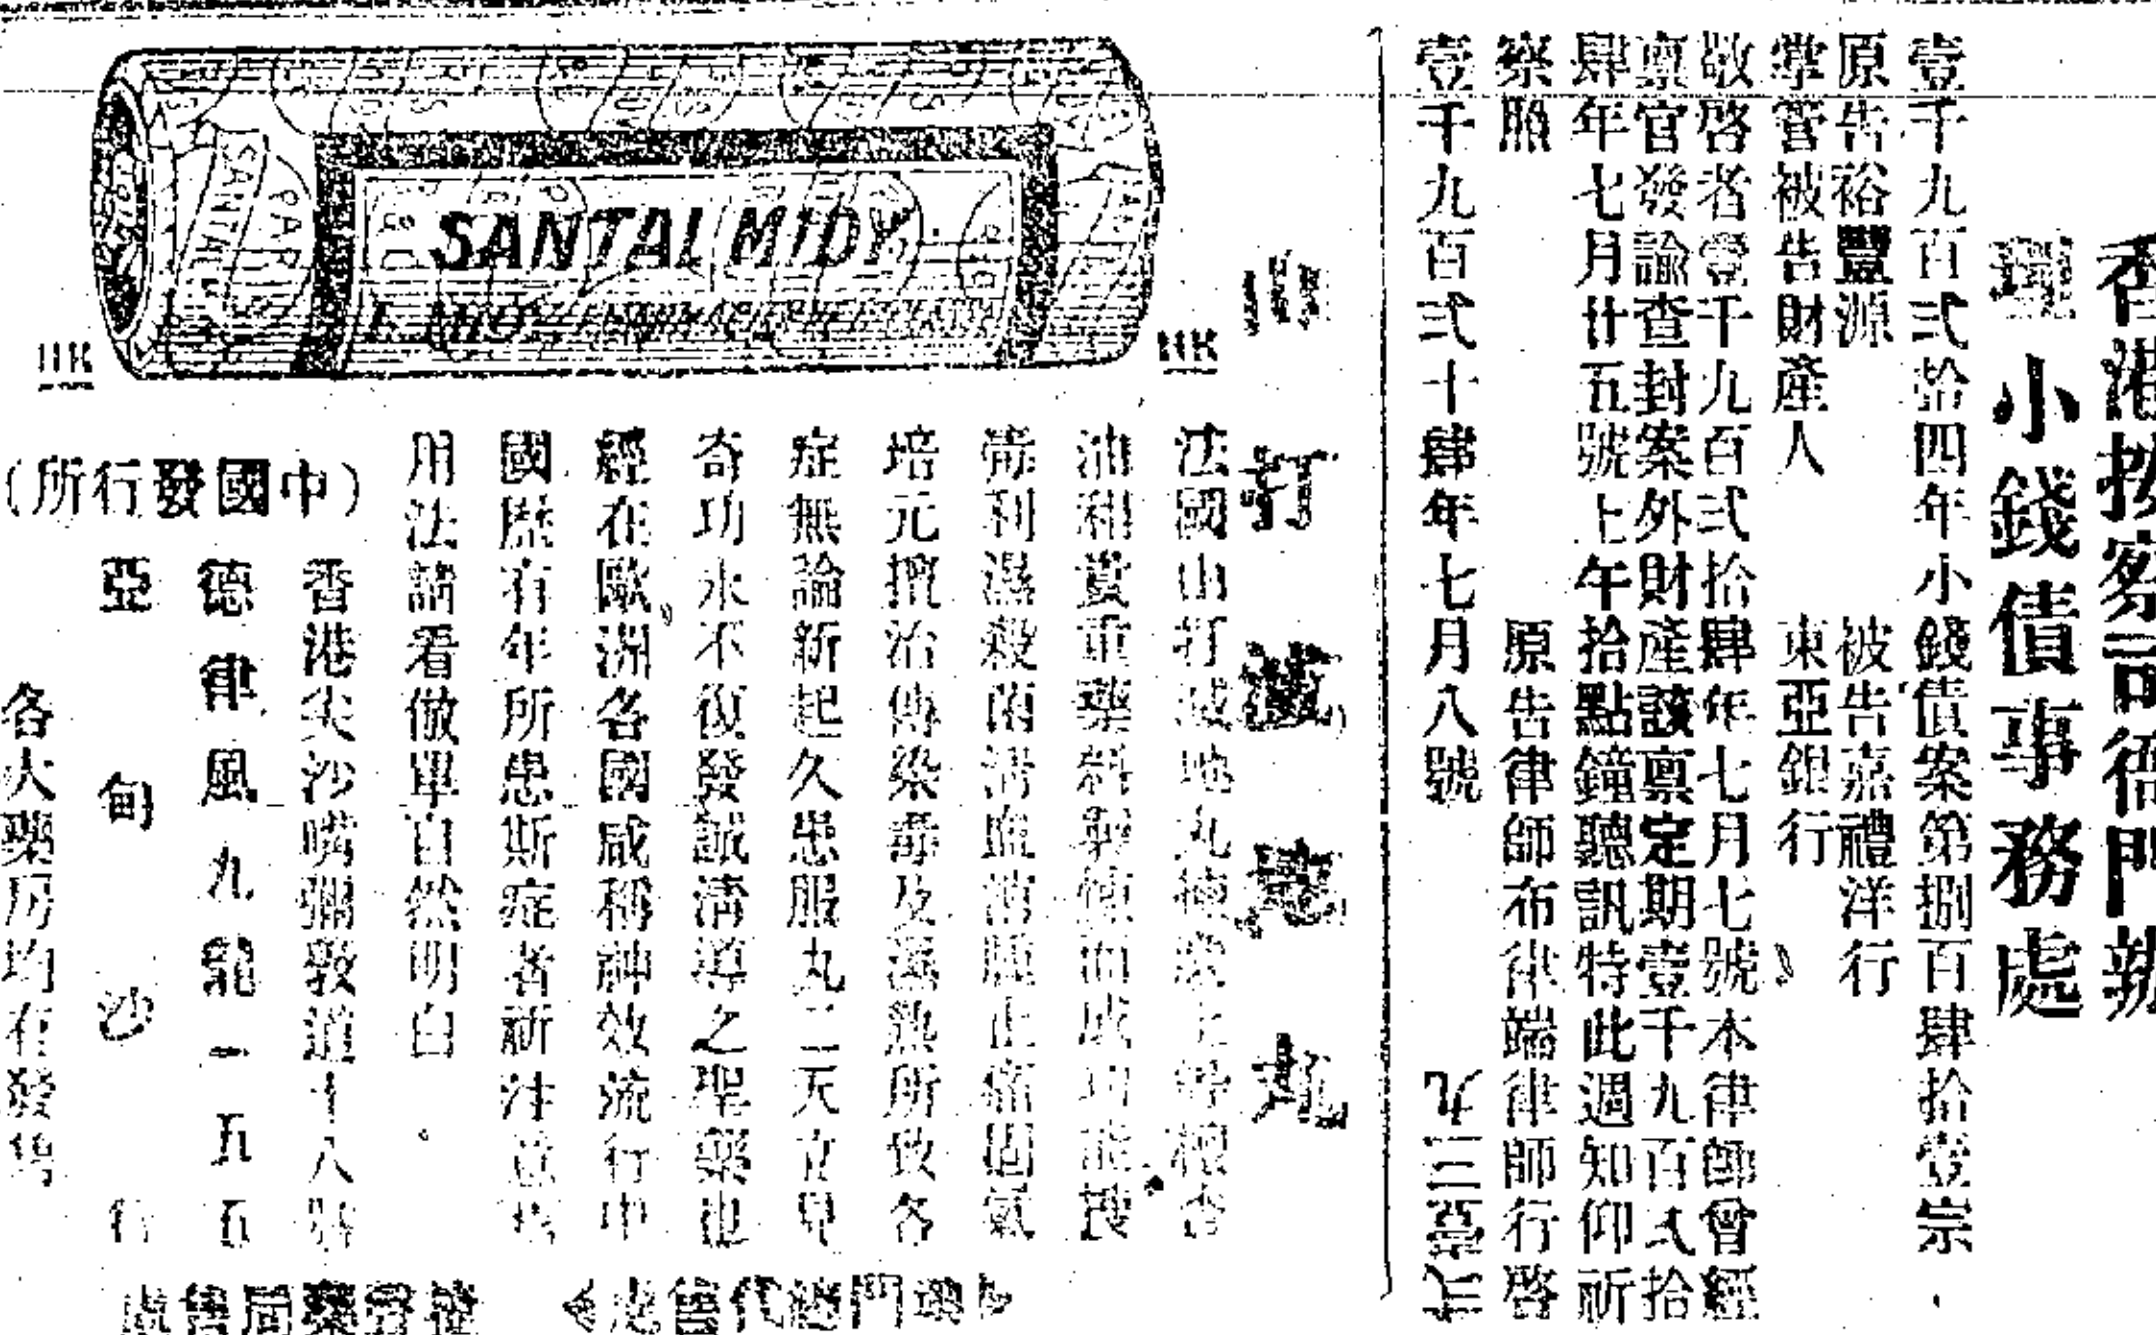 香港按察司衙門
理小錢債事務處
壹千九百弍拾四年小錢債案第捌百肆拾壹宗
原告裕豐源 被告嘉禮洋行
掌管被告財產人 東亞銀行
敬啓者壹千九百弍拾肆年七月七號本律師曾經
禀官發諭查封案外財產該禀定期壹千九百弍拾
肆年七月廿五號上午拾點鐘聽訊特此週知仰祈
察照 原告律師布律端律師行啓
壹千九百弍十肆年七月八號
SANTAL MIDY
SANTAL
PARIS
HK
HK
山打 丸
法國山打 地丸
油和貴重藥料 功能
利濕殺菌清血 止痛固氣
培元擅治傳染毒及濕熱所致各
症無論新起久患服丸二天立見
奇功永不復發誠清導之聖藥也
經在歐洲各國咸稱神效流行中
國歷有年所患斯症者祈注意焉
用法請看倣單自然明白
(中國發行所)
香港尖沙嘴彌敦道十八號
德律風九龍一五五
亞甸沙行
各大藥房均有發售